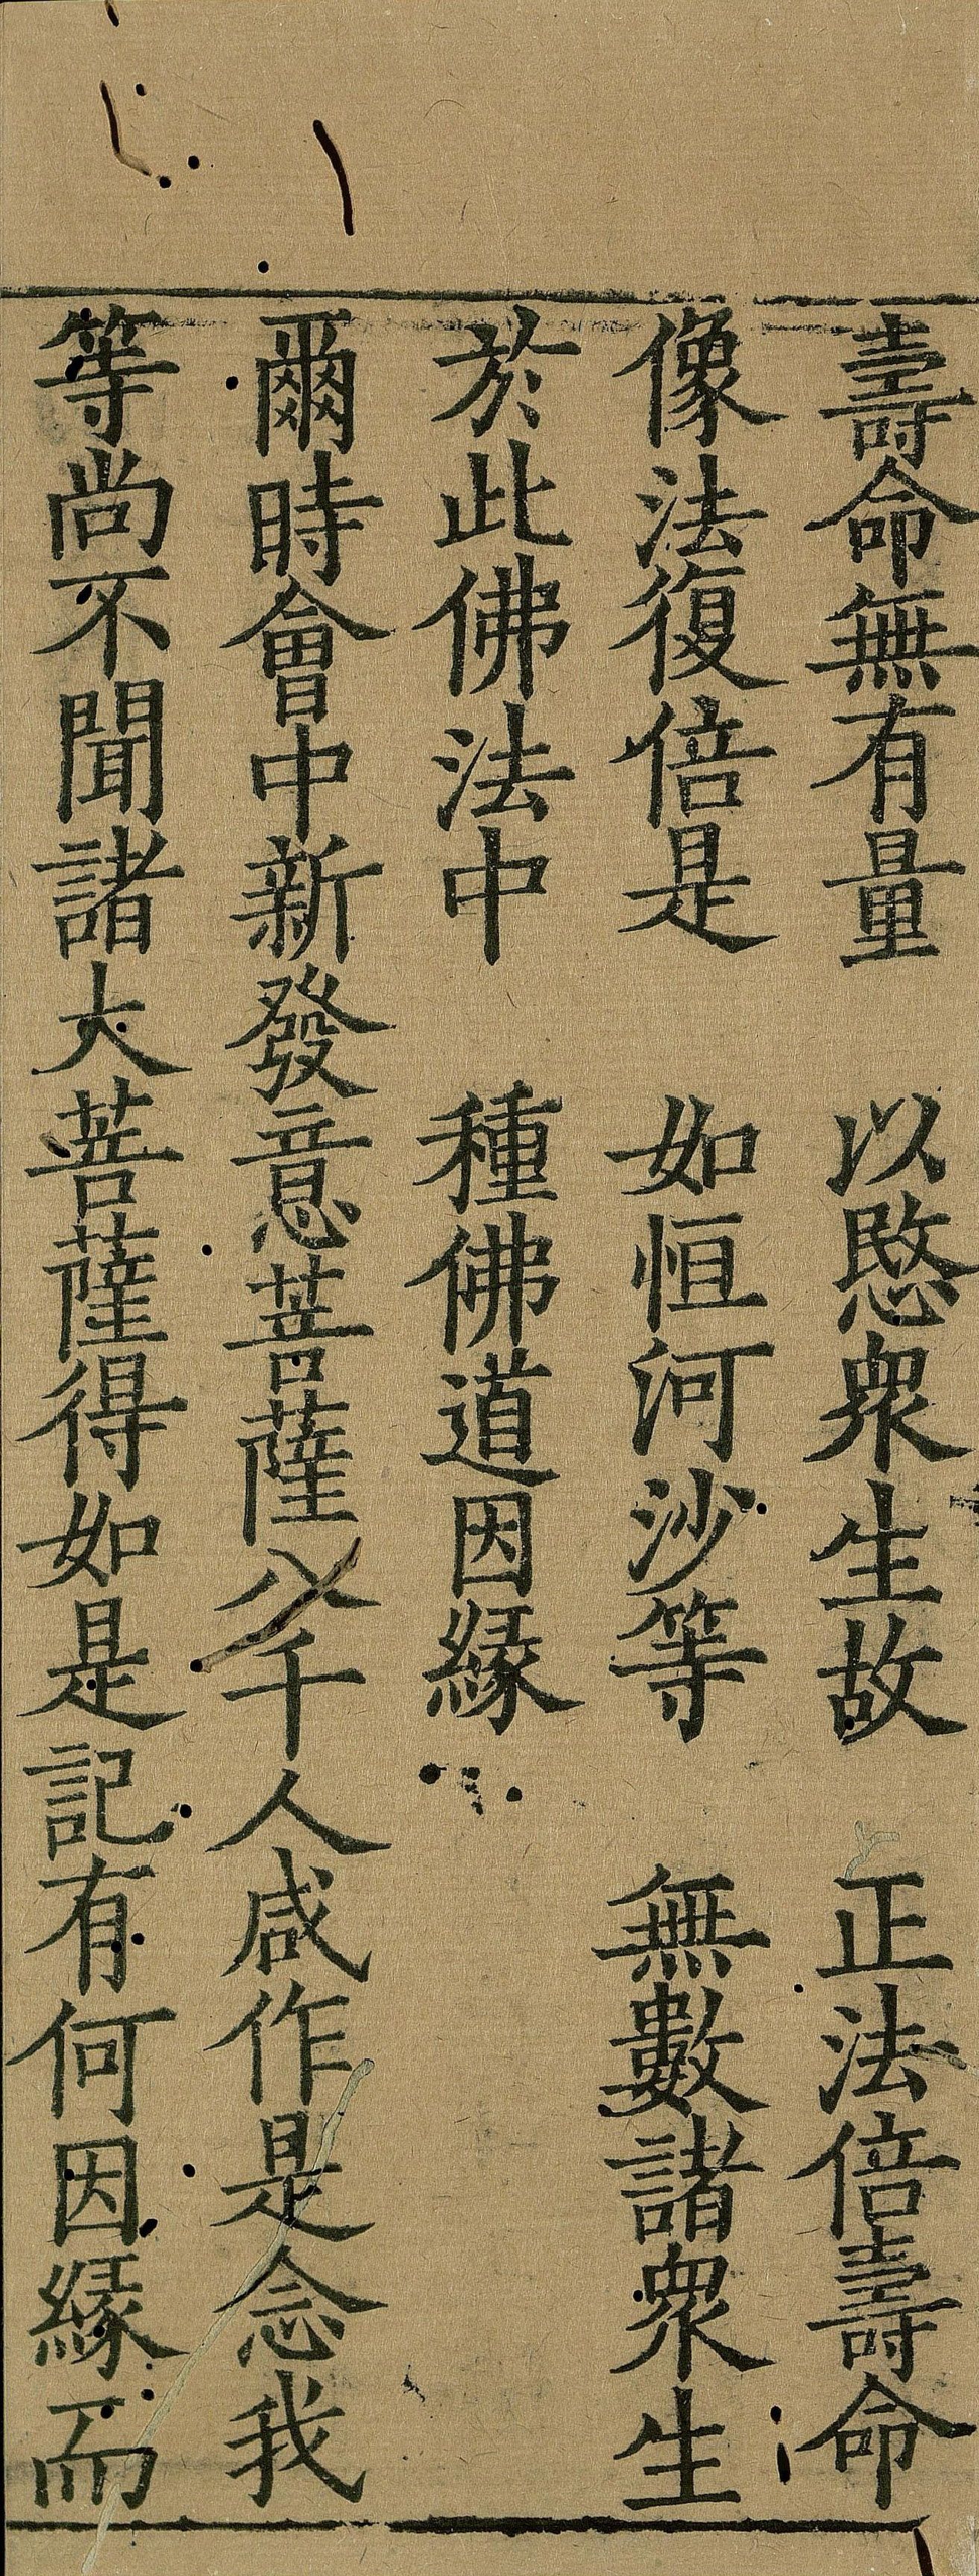 壽命無有量　以愍衆生故　正法倍壽命
像法復倍是　如恒河沙等　無數諸衆生
於此佛法中　種佛道因緣
爾時會中新發意菩薩八千人咸作是念我
等尚不聞諸大菩薩得如是記有何因緣而